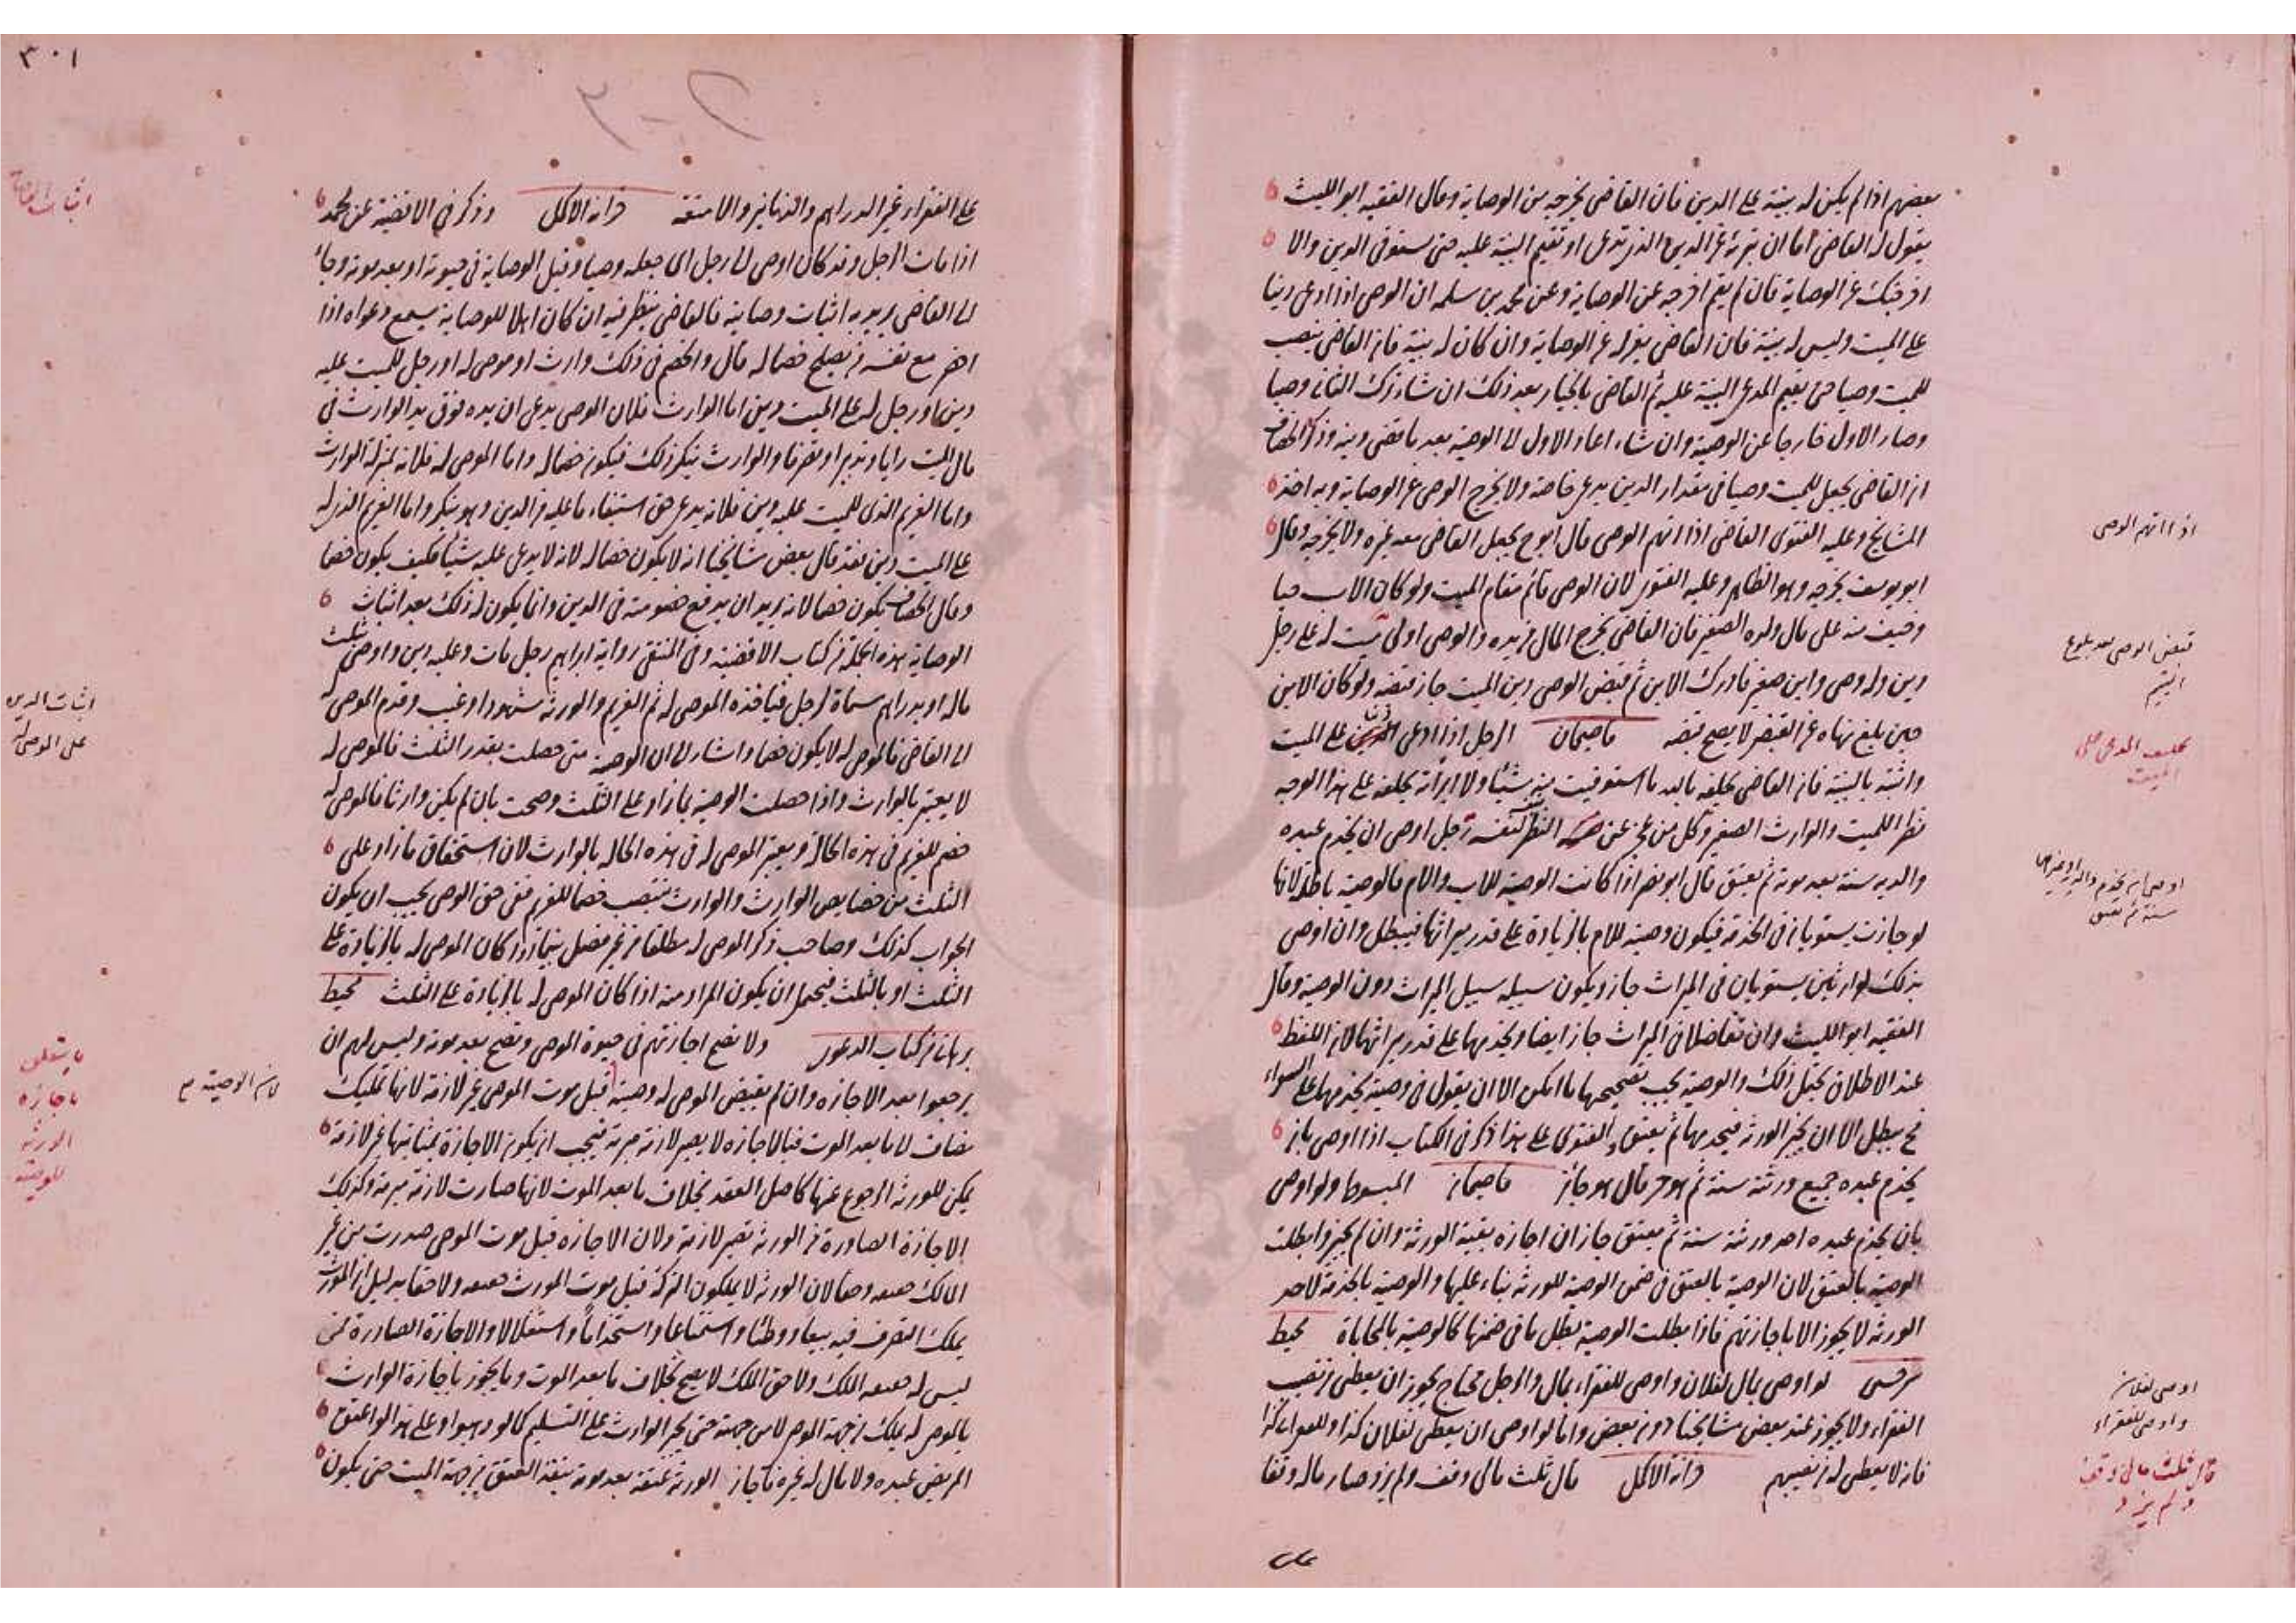 بعضهم اذا لم يكن له بينة على الدين فان القاضى يخرجه من الوصاية وقال الفقيه ابو الليث
يقول له القاضى اما ان تبرئه عن الدين الذى تدعى او تقيم البينة عليه حتى تستوفى الدين والا
اخرجتك عن الوصاية فان لم يقم اخرجه عن الوصاية وعن محمد بن سلمه ان الوصى اذا ادعى دينا
على الميت وليس له بينة فان القاضى يعزله عن الوصاية وان كان له بينة فان القاضى ينصب
للميت وصيا حتى يقيم المدعى البينة عليه ثم القاضى بالخيار بعد ذلك ان شاء ترك الثانى وصيا
وصار الاول خارجا عن الوصية وان شاء اعاد الاول الى الوصية بعد ما قضى دينه وذكر الخصاف
ان القاضى يجعل للميت وصيا فى مقدار الدين يدعى خاصة ولا يخرج الوصى عن الوصاية وبه اخذ
المشايخ وعليه الفتوى القاضى اذا اتهم الوصى قال ابو ح يجعل القاضى معه غيره ولا يخرجه وقال
ابو يوسف يخرجه وهو الظاهر وعليه الفتوى لان الوصى قائم مقام الميت ولو كان الاب حيا
وخيف منه على مال ولده الصغير فان القاضى يخرج المال من يده فالوصى اولى ميت له على رجل
دين وله وصى وابن صغير فادرك الابن ثم قبض الوصى دين الميت جاز قبضه ولو كان الابن
حين بلغ نهاه عن القبض لا يصح قبضه قاضيخان الرجل اذا ادعى دينا على الميت
واثبته بالبينة فان القاضى يحلفه بالله ما استوفيت منه شيئا ولا ابرأته يحلفه على هذا الوجه
نظرا للميت والوارث الصغير وكل من عجز عن النظر لنفسه رجل اوصى ان يخدم عبده
والديه سنة بعد موته ثم يعتق قال ابو نصر اذا كانت الوصية للاب والام فالوصية باطلة لانها
لو جازت يستويان فى الخدمة فيكون وصية للام بالزيادة على قدر ميراثها فيبطل وان اوصى
بذلك لوارثين يستويان فى الميراث جاز ويكون سبيله سبيل الميراث دون الوصية وقال
الفقيه ابو الليث وان تفاضلا فى الميراث جاز ايضا ويخدمهما على قدر ميراثهما لان اللفظ
عند الاطلاق يحتمل ذلك والوصية يجب تصحيحها ما امكن الا ان يقول فى وصيته يخدمهما على السواء
فح يبطل الا ان يجيز الورثة فيخدمهما ثم يعتق والفتوى على هذا ذكر فى الكتاب اذا اوصى بان
يخدم عبده جميع ورثته سنة ثم هو حر قال هو جائز قاضيخان المبسوط ولو اوصى
بان يخدم عبده احد ورثته سنة ثم يعتق جاز ان اجازه بقية الورثة وان لم يجيزوا بطلت
الوصية بالعتق لان الوصية بالعتق فى ضمن الوصية للورثة بناء عليها والوصية بالخدمة لاحد
الورثة لا يجوز الا باجازتهم فاذا بطلت الوصية بطل ما فى ضمنها كالوصية بالمحاباة محيط
سرخسى لو اوصى بمال لفلان واوصى للفقراء بمال والرجل محتاج يجوز ان يعطى من نصيب
الفقراء ولا يجوز عند بعض مشايخنا دون بعض واما لو اوصى ان يعطى لفلان كذا وللفقراء كذا
فانه لا يعطى له من نصيبهم خزانة الاكمل قال ثلث مالى وقف ولم يزد وصار ماله وقفا
على
اذا اتهم الوصى
قبض الوصى بعد بلوغ
اليتيم
تحليف المدعى على
الميت
اوصى ان يخدم والديه
سنة ثم يعتق
اوصى لفلان
واوصى للفقراء
قال ثلث مالى وقف
ولم يزد
٣٠١
على الفقراء وغير الدراهم والدنانير والامتعة خزانة الاكمل وذكر فى الاقضية عن محمد
اذا مات الرجل وقد كان اوصى الى رجل اى جعله وصيا وقبل الوصاية فى حيوته او بعد موته وجاء
الى القاضى يريد به اثبات وصايته فالقاضى ينظر فيه ان كان اهلا للوصاية يسمع دعواه اذا
احضر مع نفسه من يصلح خصما له قال والخصم فى ذلك وارث او موصى له او رجل للميت عليه
دين او رجل له على الميت دين اما الوارث فلان الوصى يدعى ان يده فوق يد الوارث فى
مال الميت رايا وتدبيرا وتصرفا والوارث ينكر ذلك فيكون خصما له واما الموصى له فلانه بمنزلة الوارث
واما الغريم الذى للميت عليه دين فلانه يدعى حق استيفاء ما عليه من الدين وهو ينكر واما الغريم الذى له
على الميت دين فقد قال بعض مشايخنا انه لا يكون خصما له لانه لا يدعى عليه شيئا فكيف يكون خصما
وقال الخصاف يكون خصما لانه يريد ان يدفع خصومته فى الدين وانما يكون له ذلك بعد اثبات
الوصاية هذه الجملة من كتاب الاقضية وفى المنتقى رواية ابراهيم رجل مات وعليه دين واوصى بثلث
ماله او بدراهم مسماة لرجل فياخذه الموصى له ثم الغريم والورثة شهود او غيب وقدم الموصى له
الى القاضى فالموصى له لا يكون خصما واشار الى ان الوصية متى حصلت بقدر الثلث فالموصى له
لا يعتبر بالوارث واذا حصلت الوصية بما زاد على الثلث وصحت بان لم يكن وارثا فالموصى له
خصم للغريم فى هذه الحالة ويعتبر الموصى له فى هذه الحالة بالوارث لان استحقاق ما زاد على
الثلث من خصايص الوارث والوارث ينتصب خصما للغريم ففى حق الوصى يجب ان يكون
الجواب كذلك وصاحب ذكر الموصى له مطلقا من غير فصل بينما اذا كان الموصى له بالزيادة على
الثلث او بالثلث فيحتمل ان يكون المراد منه اذا كان الموصى له بالزيادة على الثلث محيط
برهانى من كتاب الدعوى ولا تصح اجازتهم فى حيوة الموصى وتصح بعد موته وليس لهم ان
يرجعوا بعد الاجازه وان لم يقبض الموصى له وصيته قبل موت الموصى غير لازمة لانها تمليك
مضاف الى ما بعد الموت فبالاجازه لا يصير لازمة مبرمة فيجب ان يكون الاجازة بمثابتها غير لازمة
يمكن للورثة الرجوع عنها كاصل العقد بخلاف ما بعد الموت لانها صارت لازمة مبرمة وكذلك
الاجازة الصادرة من الورثة تصير لازمة ولان الاجازه قبل موت الموصى صدرت من غير
المالك حقيقة وحقا لان الورثة لا يملكون التركة قبل موت المورث حقيقة ولا حقا بدليل ان المورث
يملك التصرف فيه بيعا ووطئا واستمتاعا واستخداما واستغلالا والاجازة الصادرة ممن
ليس له حقيقة الملك ولا حق الملك لا يصح بخلاف ما بعد الموت وما يجوز باجازة الوارث
فالموصى له يملك من جهة الموصى لا من جهته حتى يجبر الوارث على التسليم كما لو وهبوا وعلى هذا لو اعتق
المريض عبده ولا مال له غيره فاجاز الورثة عتقه بعد موته ينفذ العتق من جهة الميت حتى يكون
اثبات الوصاية
اثبات الدين
على الموصى له
لان الوصية
ما يتعلق
باجازة
الورثة
للوصية